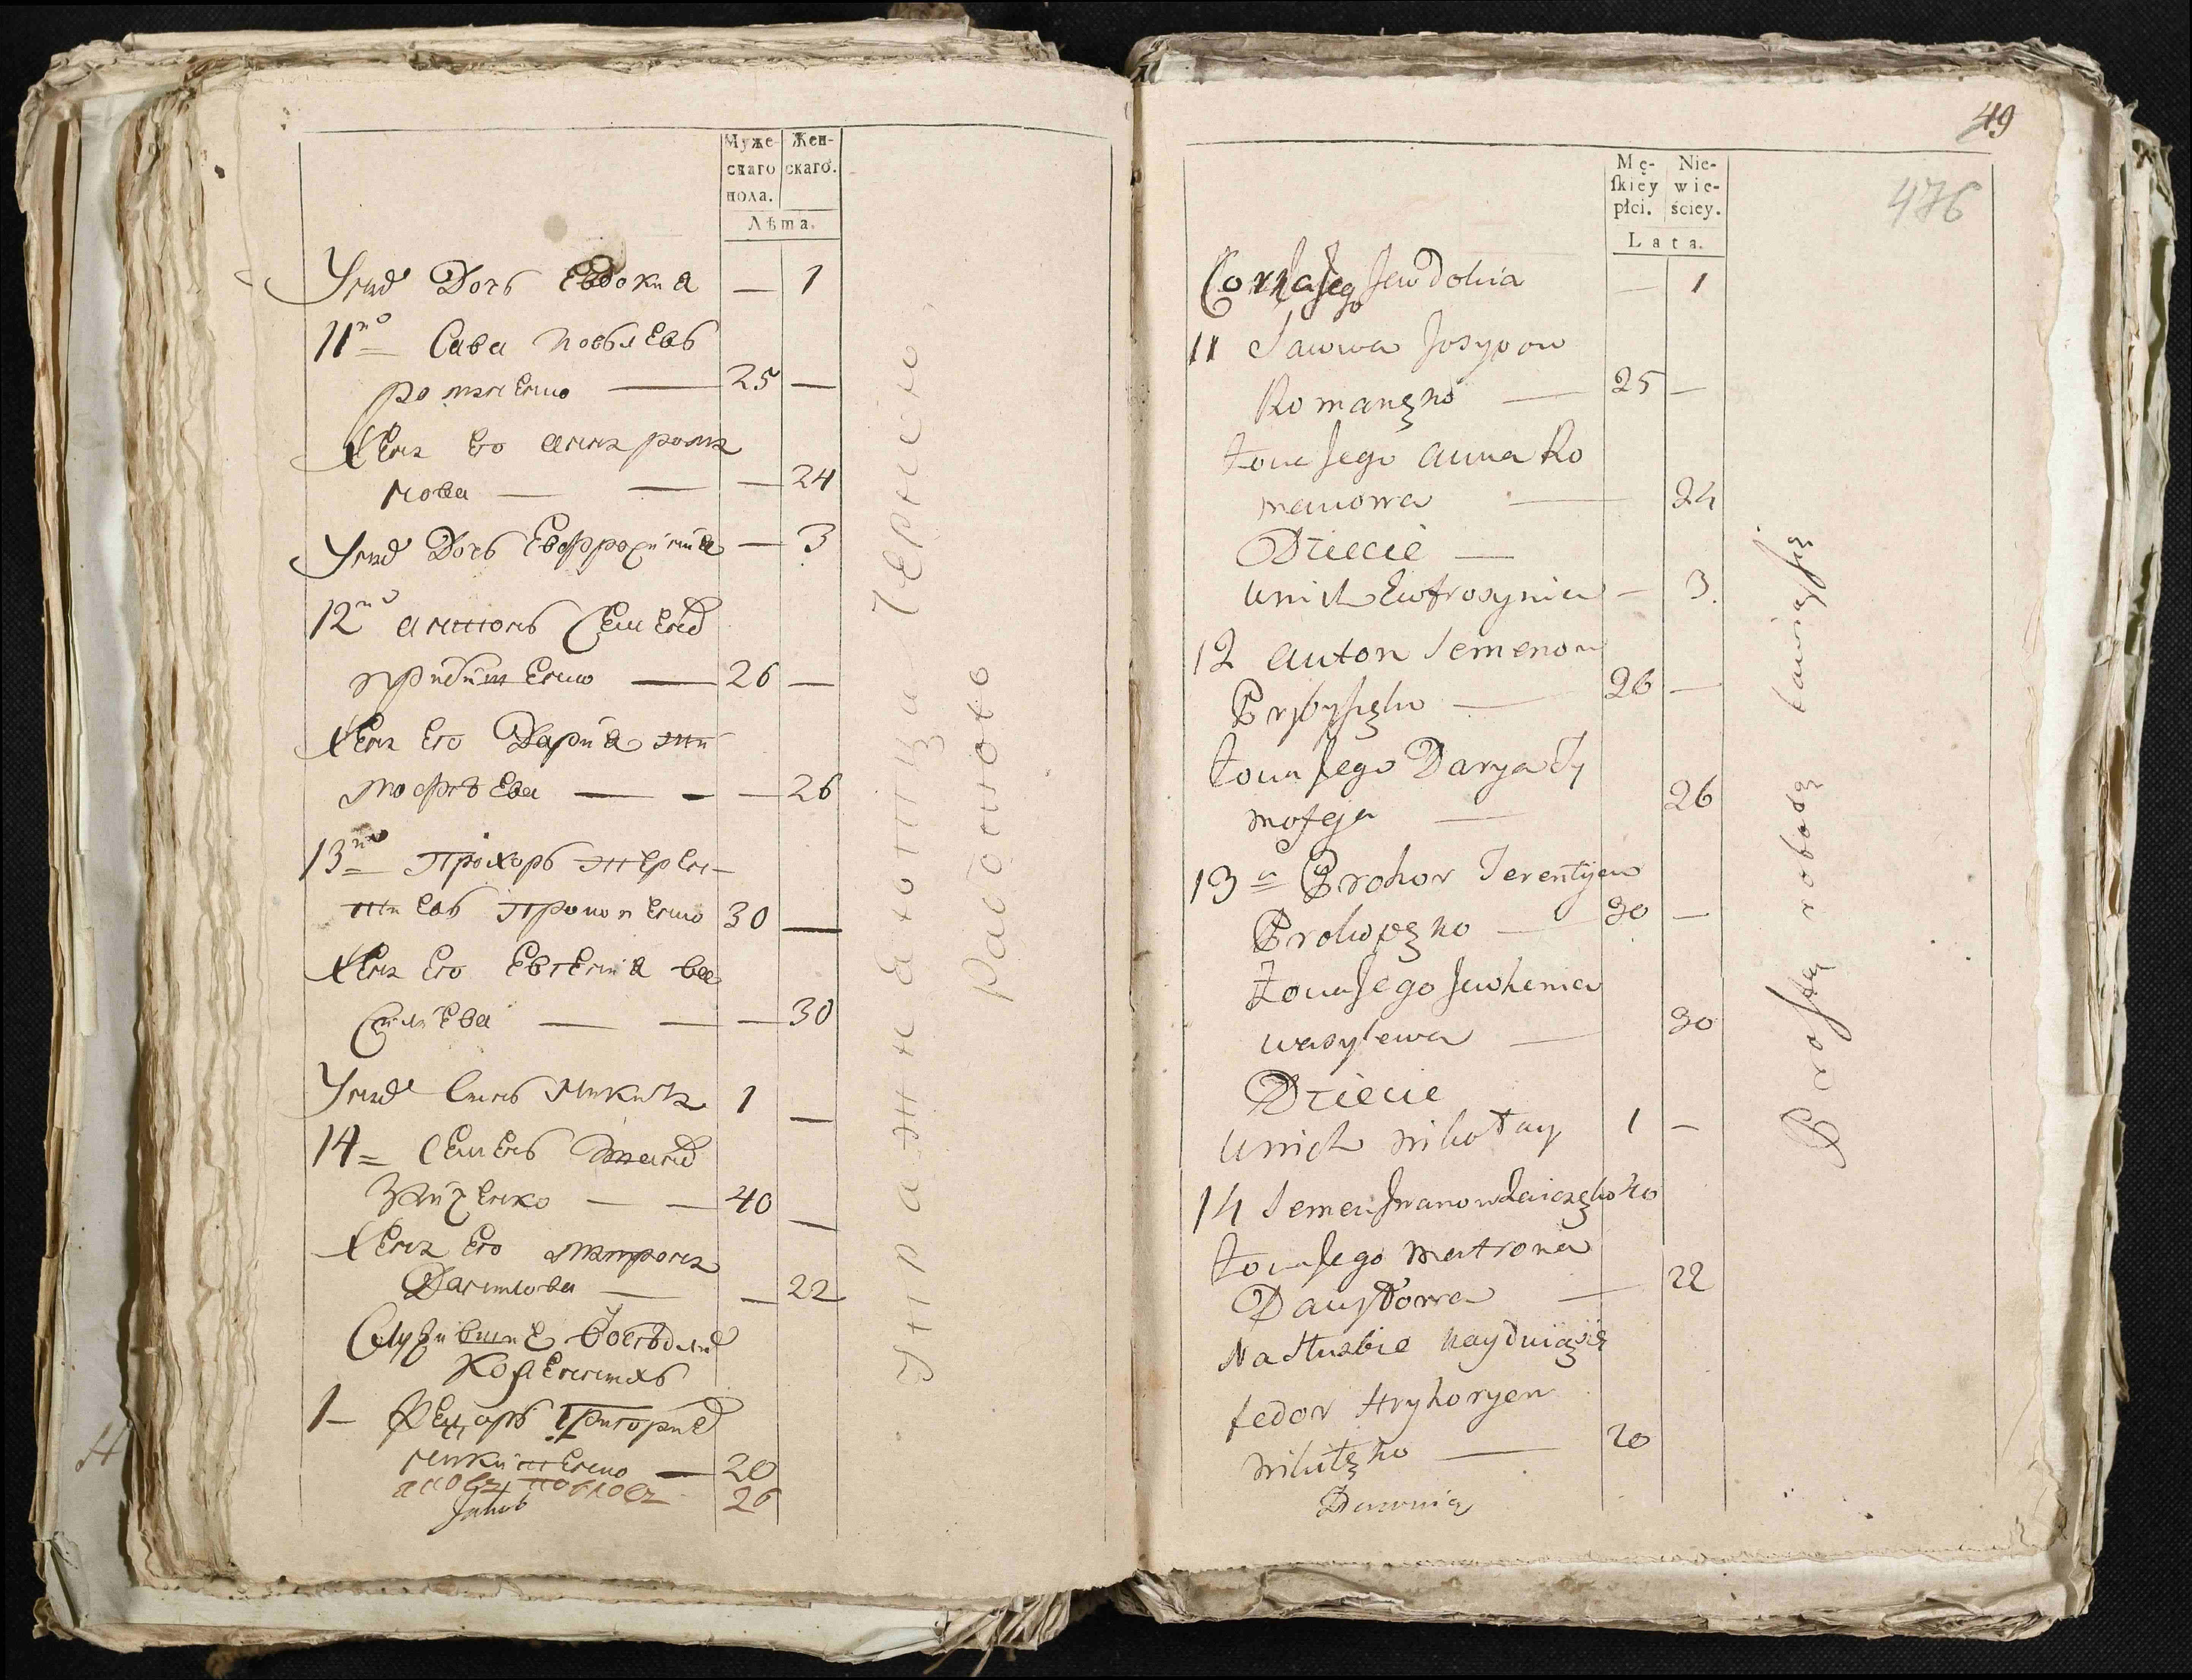 Муже- Жен-
скаго скаго.
пола.
Лѣта.
У них Дочь Евдокиа — 1
11но Сава Иосыпевъ
романенко — 25 —
Жена Его анна рома
нова — — — 24
У них Дочь Евфрозиниа — 3
12но антонъ Семенов
прибишенко — 26 —
Жена Его Дариа ти
мофѣева — — — 26
13но Прохоръ терен-
тиевъ Прокопенко 30 —
Жена Его Евгениа ва
силиева — — — 30
У них Синъ Микита 1 —
14 = Семенъ Иванов
Заиченко — — 40 —
Жена Его матрона
Данилова — — 22
Служившие
1 — Федоръ Григориев
микитенко — 20
26
Jakob
упражняютца чернною
работою
49
476
Mę- Nie-
ſkiey wie-
płci. ściey.
Lata.
Corka Jego Jewdokia — 1
11 Sawwa Josypow
Romanęko — 25 —
żona Jego anna Ro
manowa — 24
Dziecie —
u nich Eufrosynia — 3.
12 anton Semenow
Prybyszęko — 26 —
żona Jego Darya Ty
mofeja — 26
13 = Prohor Terentyew
Prokopęko — 30 —
żona Jego Jewhenia
wasylewa — 30
Dziecie
u nich mikołay 1 —
14 Semen Jwanow Zaiczęko 40
żona Jego matrona
Danyłowa — 22
Na służbie nayduią się
fedor Hryhoryew
mikitęko — 20
Prostą robotą bawią się